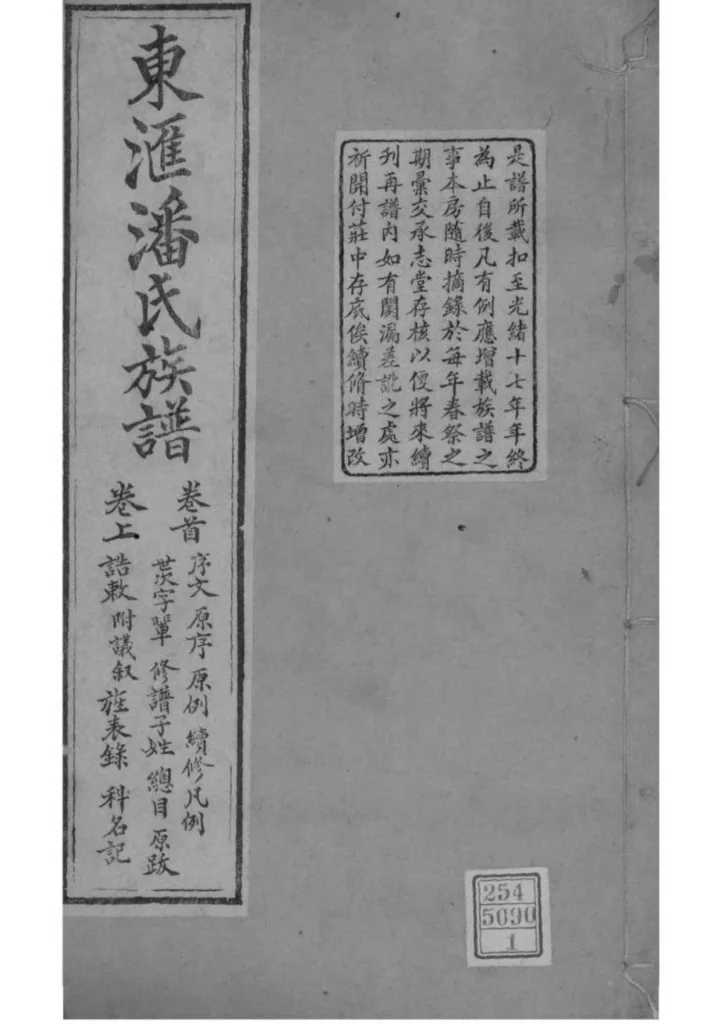 是譜所載扣至光緒十七年年終
為止自後凡有例應增載族譜之
事本房隨時摘錄於每年春祭之
期彙交承志堂存核以便將來續
刋再譜內如有闕漏差訛之處亦
祈開付莊中存底俟續脩時增改
東滙潘氏族譜
卷首
序文 原序 原例 續修凡例
世次字輩 修譜子姓 總目 原跋
卷上
誥敕 附議叙 旌表錄 科名記
254
5690
1